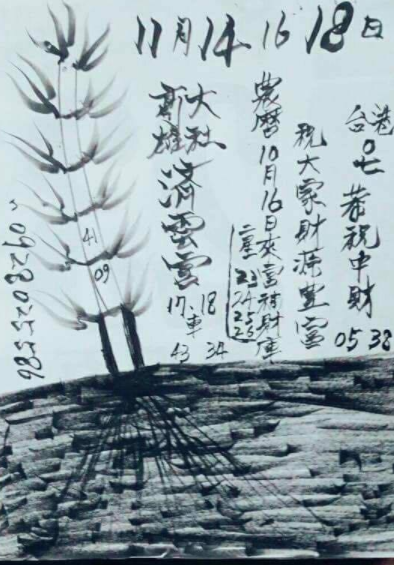 11月14 16 18日
台港
05 38
恭祝中財
祝大家財源豐富
農曆10月16日來富補財庫
二星 23
24
25
26
大社
高雄
濟雲宮
17 18
車
43 34
41
09